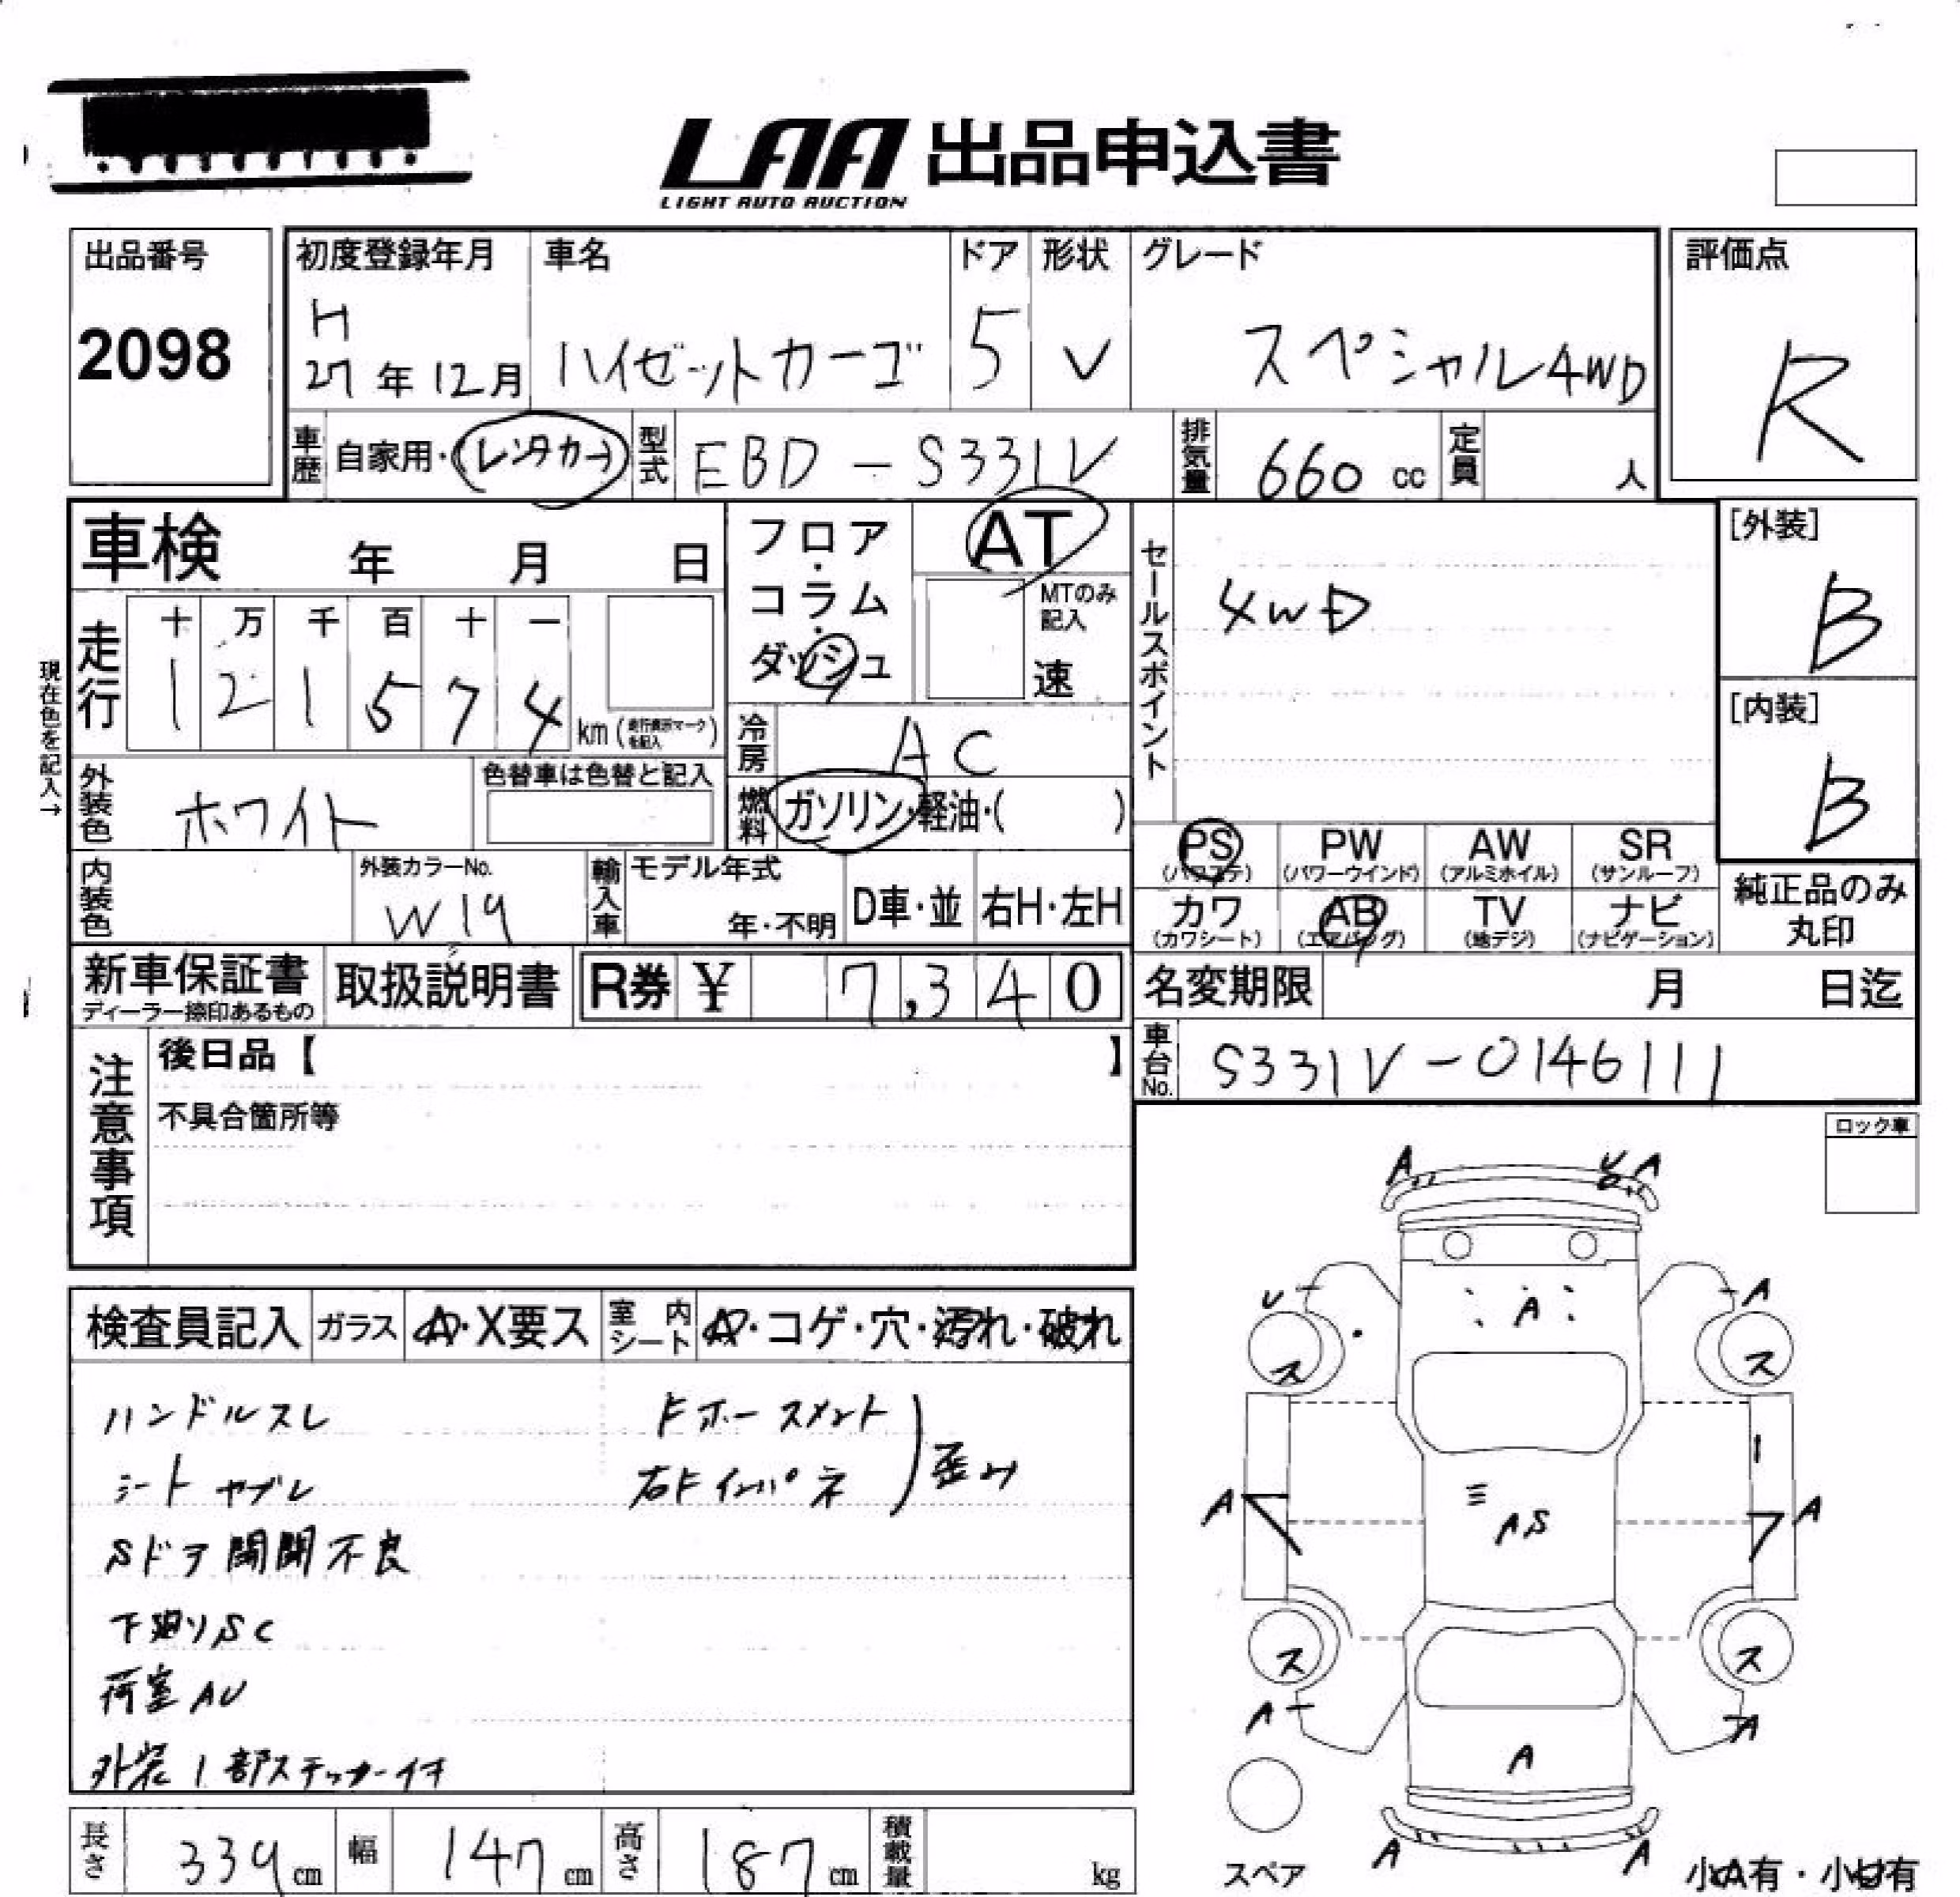 LAA 出品申込書
LIGHT AUTO AUCTION
出品番号
2098
初度登録年月
H
27年12月
車名
ハイゼットカーゴ
ドア
5
形状
V
グレード
スペシャル4WD
評価点
R
車歴 自家用・(レンタカー)
型式 EBD-S331V
排気量 660 cc
定員 人
車検 年 月 日
フロア・コラム・ダッシュ
AT
MTのみ記入
速
セールスポイント
4WD
[外装]
B
[内装]
B
現在色を記入→
走行
十 万 千 百 十 一
1 2 1 5 7 4
km(走行表示マークを記入)
冷房 AC
外装色 ホワイト
色替車は色替と記入
燃料 ガソリン・軽油・( )
PS (パワステ)
PW (パワーウインド)
AW (アルミホイル)
SR (サンルーフ)
カワ (カワシート)
AB (エアバッグ)
TV (地デジ)
ナビ (ナビゲーション)
純正品のみ丸印
内装色
外装カラーNo.
W19
輸入車
モデル年式
年・不明
D車・並
右H・左H
新車保証書
ディーラー捺印あるもの
取扱説明書
R券 ¥ 7,340
名変期限 月 日迄
車台No. S331V-0146111
注意事項
後日品【 】
不具合箇所等
ロック車
検査員記入
ガラス A・X要ス
室内シート A・コゲ・穴・汚れ・破れ
ハンドルスレ
シートヤブレ
Sドア開閉不良
下廻りSC
荷室AU
外装1部ステッカー付
Fホースメント
右Fインパネ
歪み
A
U A
U
A
A
ス
ス
A
A
AS
ス
ス
A
A
A
A
A
スペア
小A有・小U有
長さ 339 cm
幅 147 cm
高さ 187 cm
積載量 kg